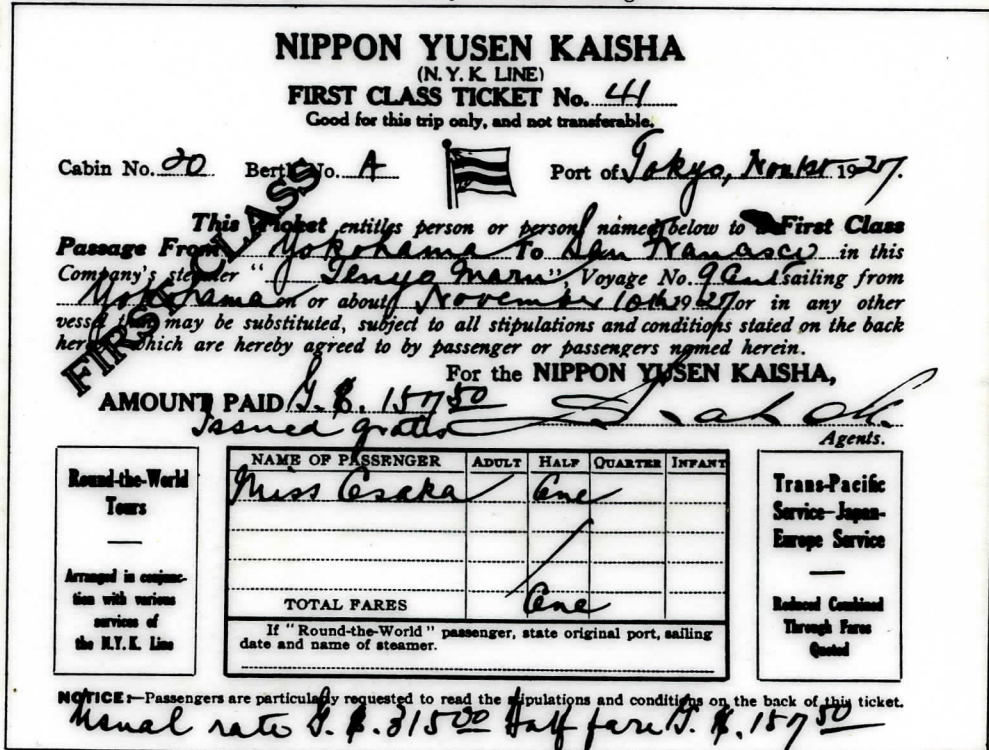 NIPPON YUSEN KAISHA
(N. Y. K. LINE)
FIRST CLASS TICKET No. 41
Good for this trip only, and not transferable.
Cabin No. 20 Berth No. A Port of Tokyo, Nov 1st 1927.
FIRST CLASS
This Ticket entitles person or persons named below to First Class
Passage From Yokohama To San Francisco in this
Company's steamer "Tenyo Maru", Voyage No. sailing from
Yokohama on or about November 10th 1927 or in any other
vessel that may be substituted, subject to all stipulations and conditions stated on the back
hereof which are hereby agreed to by passenger or passengers named herein.
For the NIPPON YUSEN KAISHA,
AMOUNT PAID G. $. 157 50
Issued gratis
Agents.
Round-the-World
Tours
Arranged in conjunc-
tion with various
services of
the N.Y.K. Line
NAME OF PASSENGER ADULT HALF QUARTER INFANT
Miss Osaka One
TOTAL FARES One
If "Round-the-World" passenger, state original port, sailing
date and name of steamer.
Trans-Pacific
Service-Japan-
Europe Service
Reduced Combined
Through Fares
Quoted
NOTICE:—Passengers are particularly requested to read the stipulations and conditions on the back of this ticket.
Usual rate G. $. 315 00 Half fare G. $. 157 50